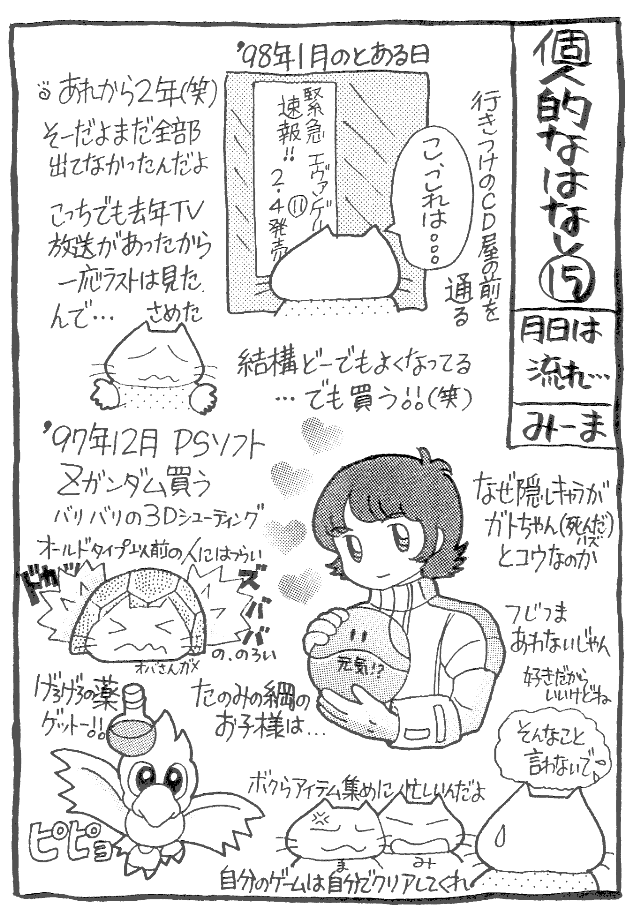 個人的なはなし⑮
月日は
流れ…
みーま
'98年1月のとある日
行きつけのCD屋の前を
通る
こ、これは。。。
緊急 エヴァンゲリ
速報!! ⑪
2.4発売
あれから2年(笑)
そーだよまだ全部
出てなかったんだよ
こっちでも去年TV
放送があったから
一応ラストは見た
んで… さめた
結構どーでもよくなってる
…でも買う!!(笑)
'97年12月 PSソフト
Zガンダム買う
バリバリの3Dシューティング
オールドタイプ以前の人にはつらい
ドカッ
ズババ
オバさんガメ
の、のろい
なぜ隠しキャラが
ガトちゃん(死んだハズ)
とコウなのか
つじつま
あわないじゃん
好きだから
いいけどね
元気!?
げろげろの薬
ゲットー!!
たのみの綱の
お子様は…
ピピョ
ボクらアイテム集めに忙しいんだよ
ま
み
自分のゲームは自分でクリアしてくれ
そんなこと
言わないで